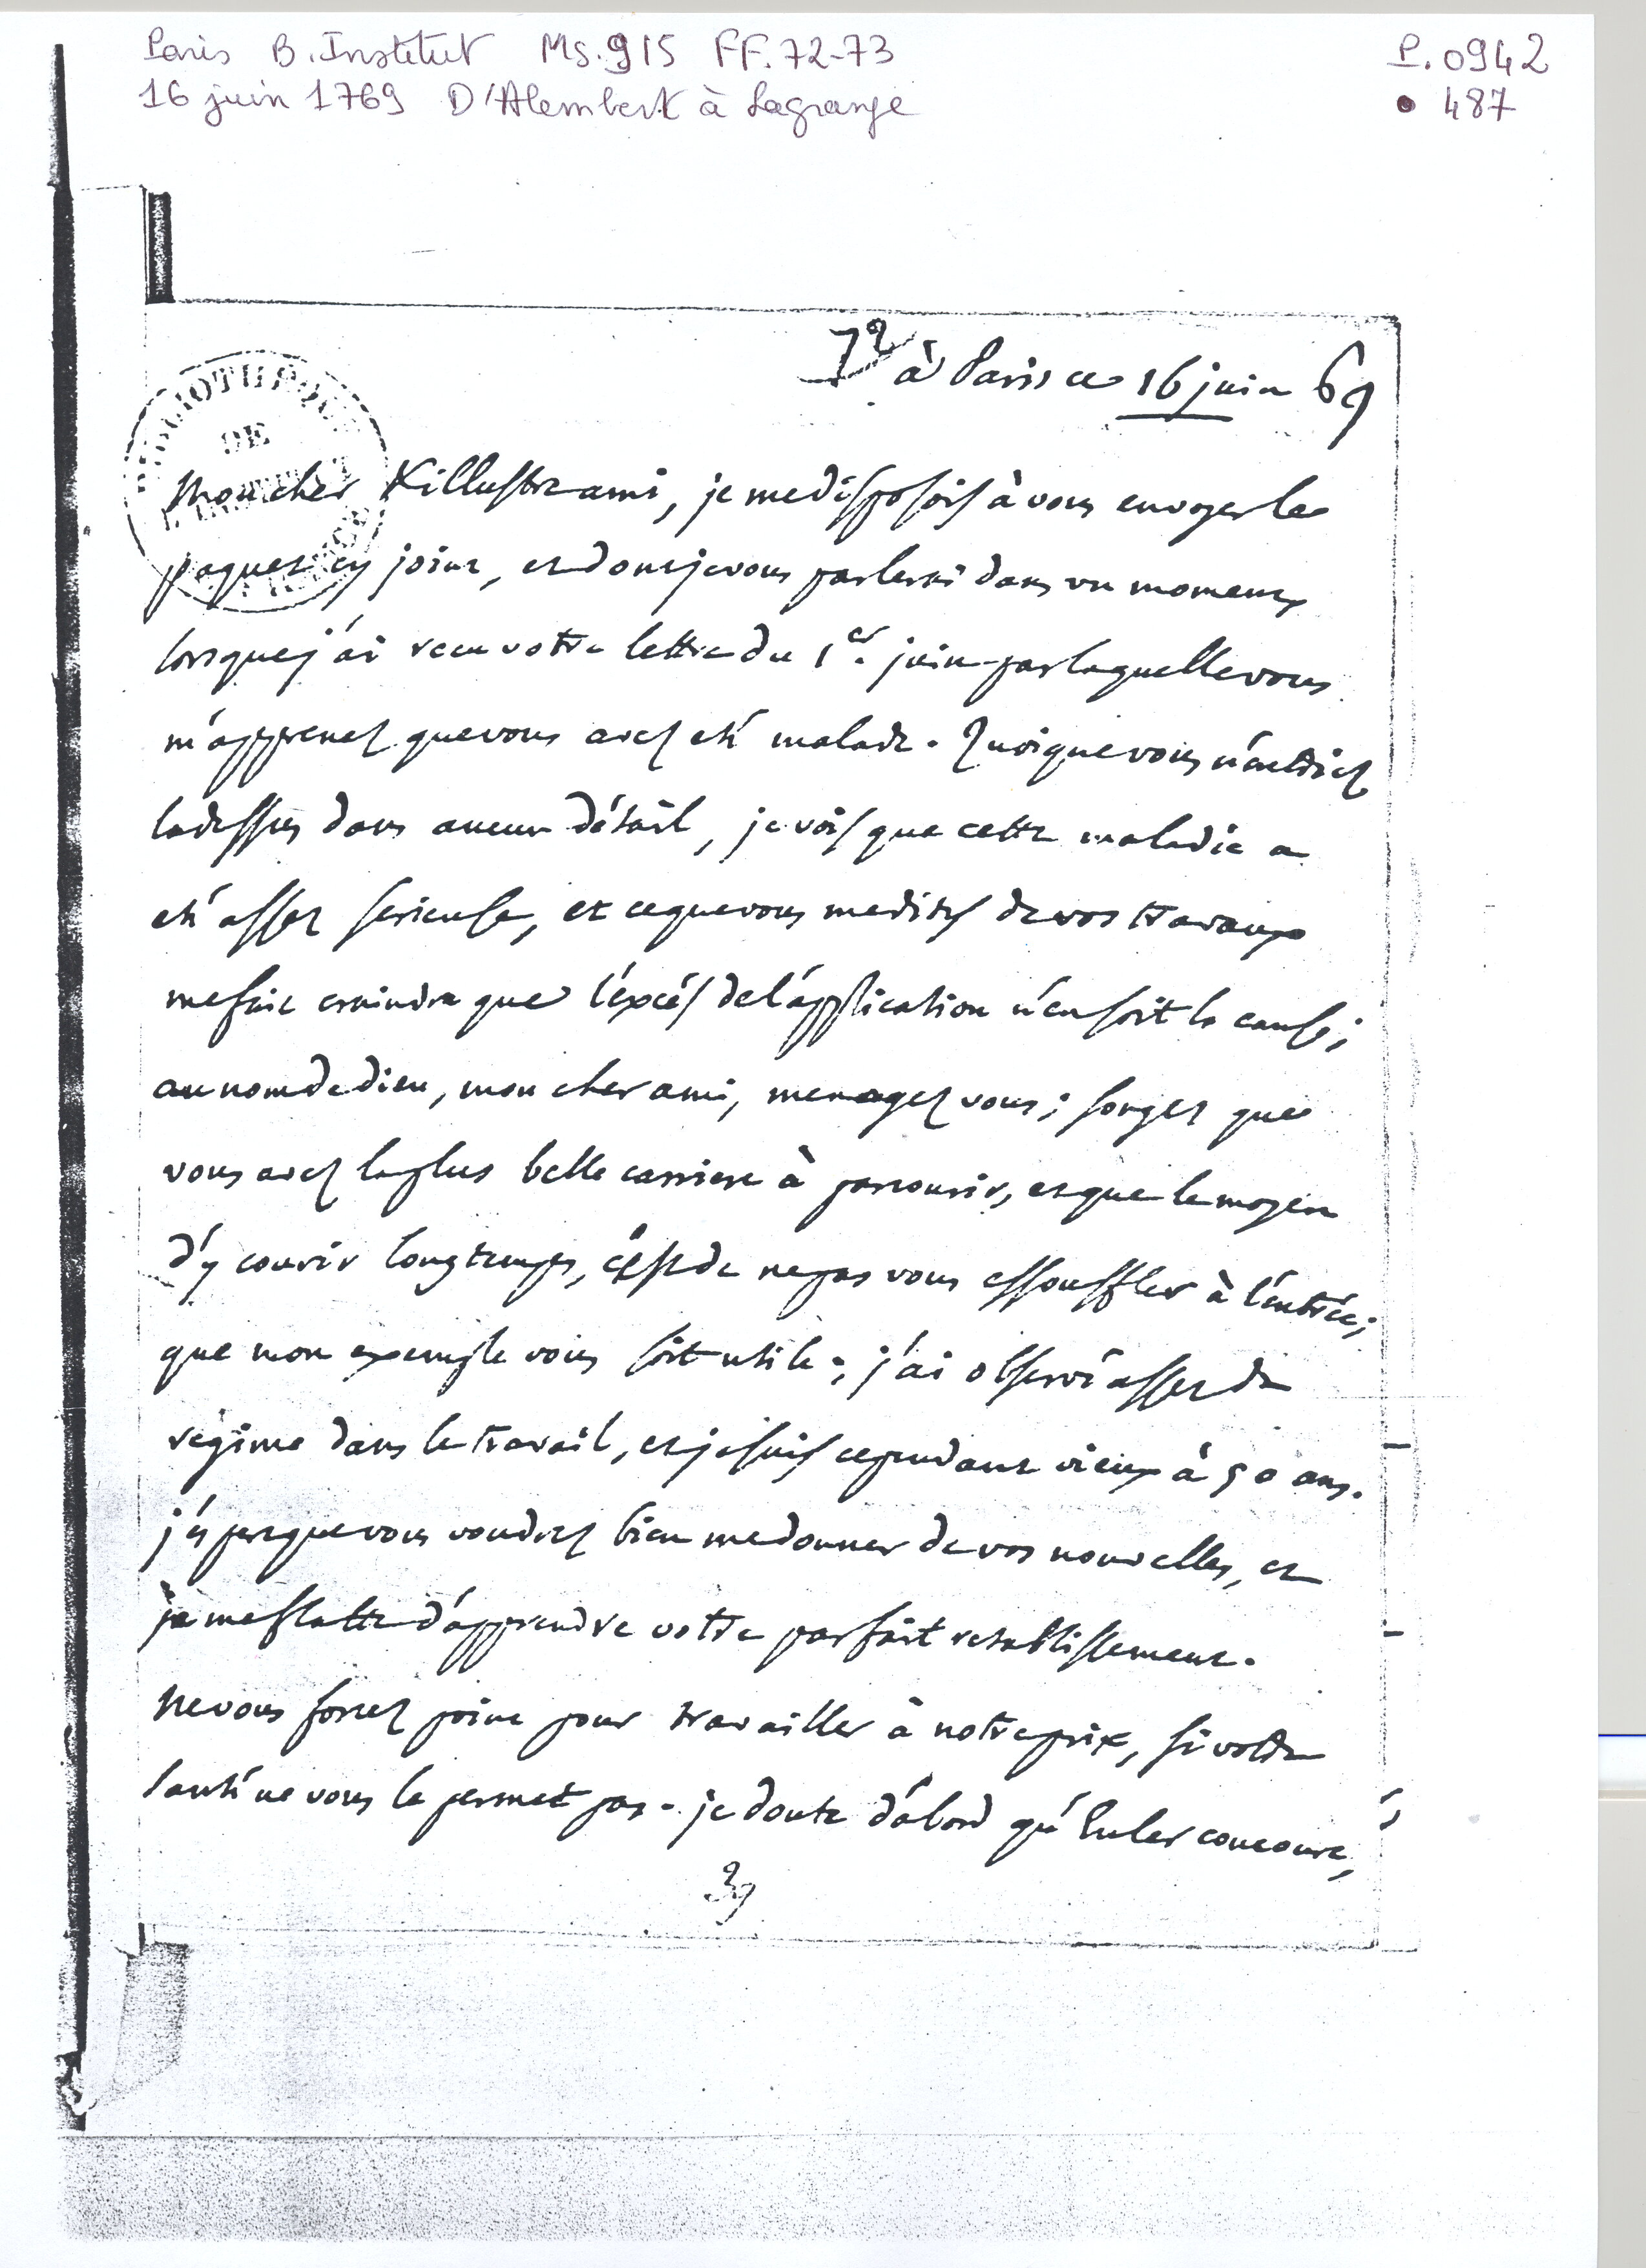 Paris B. Institut Ms. 915 FF. 72-73
P. 0942
16 juin 1769 D'Alembert à Lagrange
• 487
72
à Paris ce 16 juin 69
BIBLIOTHEQUE
DE
mon cher & illustre ami, je me disposois à vous envoyer le
paquet cy joint, et dont je vous parlerai dans un moment,
lorsque j'ai receu votre lettre du 1er. juin par laquelle vous
m'apprenez que vous avez eté malade. Quoique vous n'entriez
ladessus dans aucun détail, je vois que cette maladie a
eté assez serieuse, et ce que vous me dites de vos travaux
me fait craindre que l'excés de l'application n'en soit la cause;
au nom de dieu, mon cher ami, menagez vous; songez que
vous avez la plus belle carriere à parcourir, et que le moyen
d'y courir longtemps, c'est de ne pas vous essouffler à l'entrée;
que mon exemple vous soit utile; j'ai observé assez de
régime dans le travail, et je suis cependant vieux à 50 ans.
j'espere que vous voudrez bien me donner de vos nouvelles, et
je me flatte d'apprendre votre parfait retablissement.
ne vous forcez point pour travailler à notre prix, si votre
santé ne vous le permet pas. je doute d'abord qu'Euler concoure,
39